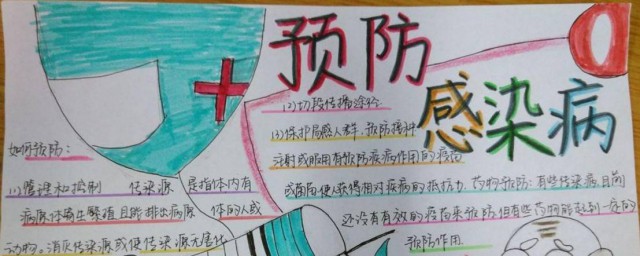 预防
感染病
如何预防：
(1)管理和控制 传染源 是指体内有
病原体寄生繁殖且能排出病原 体的人或
动物。消灭传染源或使传染源无害化
(2)切段传播途径
(3)保护易感人群，预防接种
注射或服用有预防疾病作用的疫苗
或菌局使人获得相对疾病的抵抗力 药物预防：有些传染病，目前
还没有有效的疫苗来预防但有些药物能起到一定的
预防作用